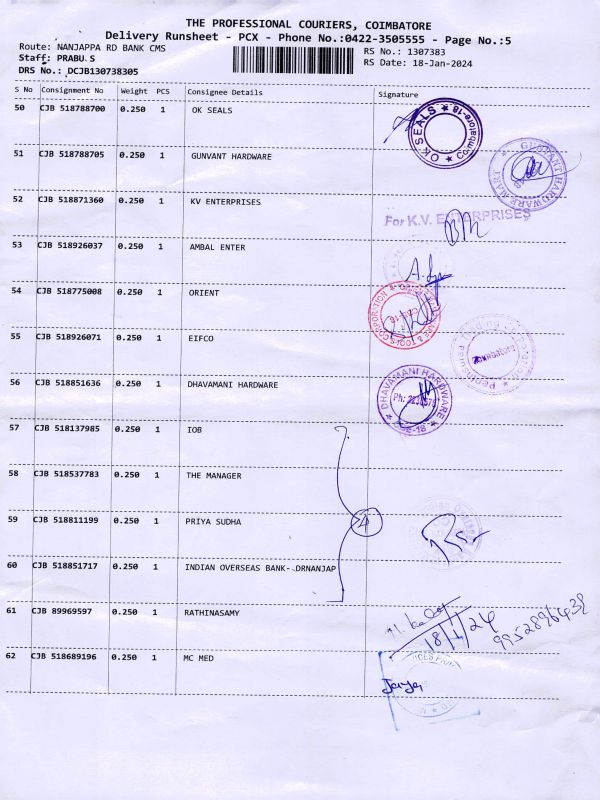 THE PROFESSIONAL COURIERS, COIMBATORE
Delivery Runsheet - PCX - Phone No.:0422-3505555 - Page No.:5
Route: NANJAPPA RD BANK CMS
RS No.: 1307383
Staff: PRABU.S
RS Date: 18-Jan-2024
DRS No.: DCJB130738305
S No Consignment No Weight PCS Consignee Details Signature
50 CJB 518788700 0.250 1 OK SEALS
OK SEALS
51 CJB 518788705 0.250 1 GUNVANT HARDWARE
52 CJB 518871360 0.250 1 KV ENTERPRISES
For K.V. ENTERPRISES
53 CJB 518926037 0.250 1 AMBAL ENTER
54 CJB 518775008 0.250 1 ORIENT
55 CJB 518926071 0.250 1 EIFCO
56 CJB 518851636 0.250 1 DHAVAMANI HARDWARE
DHAVAMANI HARDWARE
57 CJB 518137985 0.250 1 IOB
58 CJB 518537783 0.250 1 THE MANAGER
59 CJB 518811199 0.250 1 PRIYA SUDHA
4
60 CJB 518851717 0.250 1 INDIAN OVERSEAS BANK- DRNANJAP
61 CJB 89969597 0.250 1 RATHINASAMY
18/1/24
9952896438
62 CJB 518689196 0.250 1 MC MED
Jaya